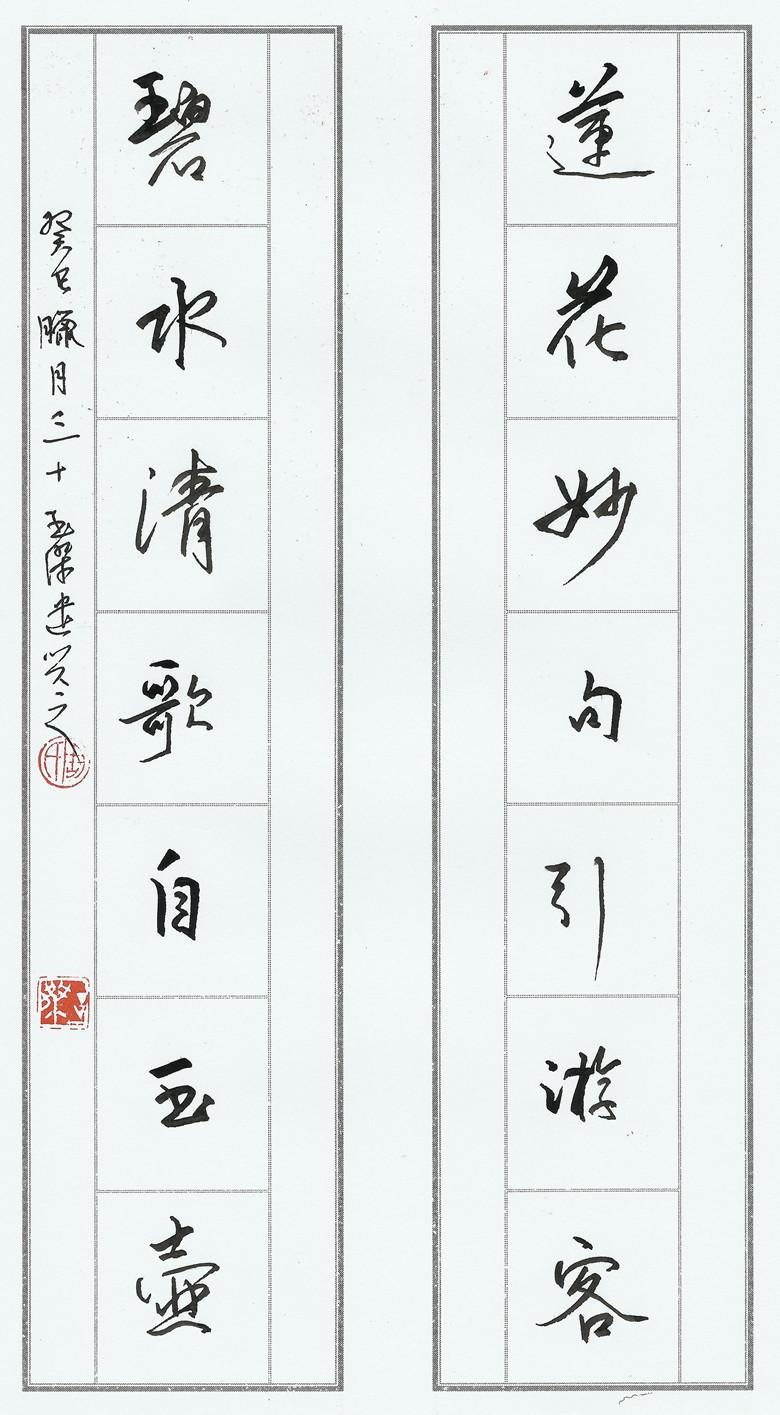 蓮花妙句引游客
碧水清歌自玉壺
癸巳臘月三十玉